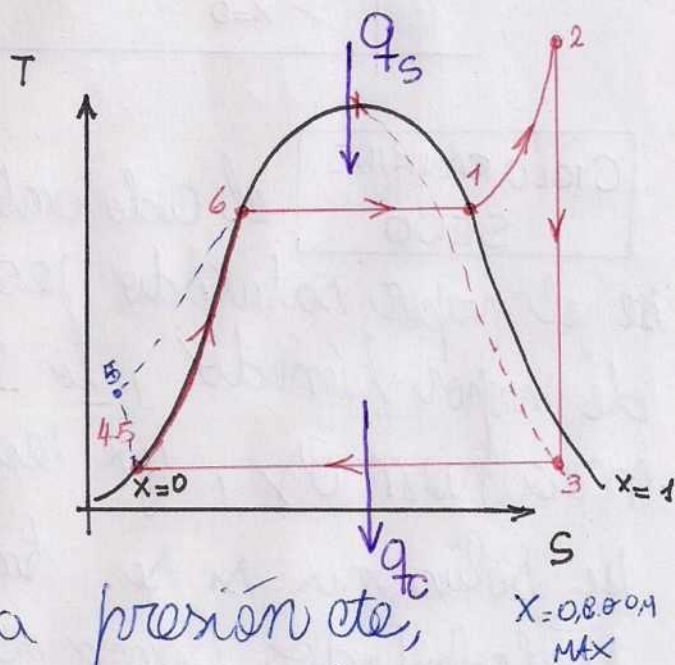 T
qs
2
6
1
5
4.5
X=0
3
X=1
S
qc
a presión cte,
MAX